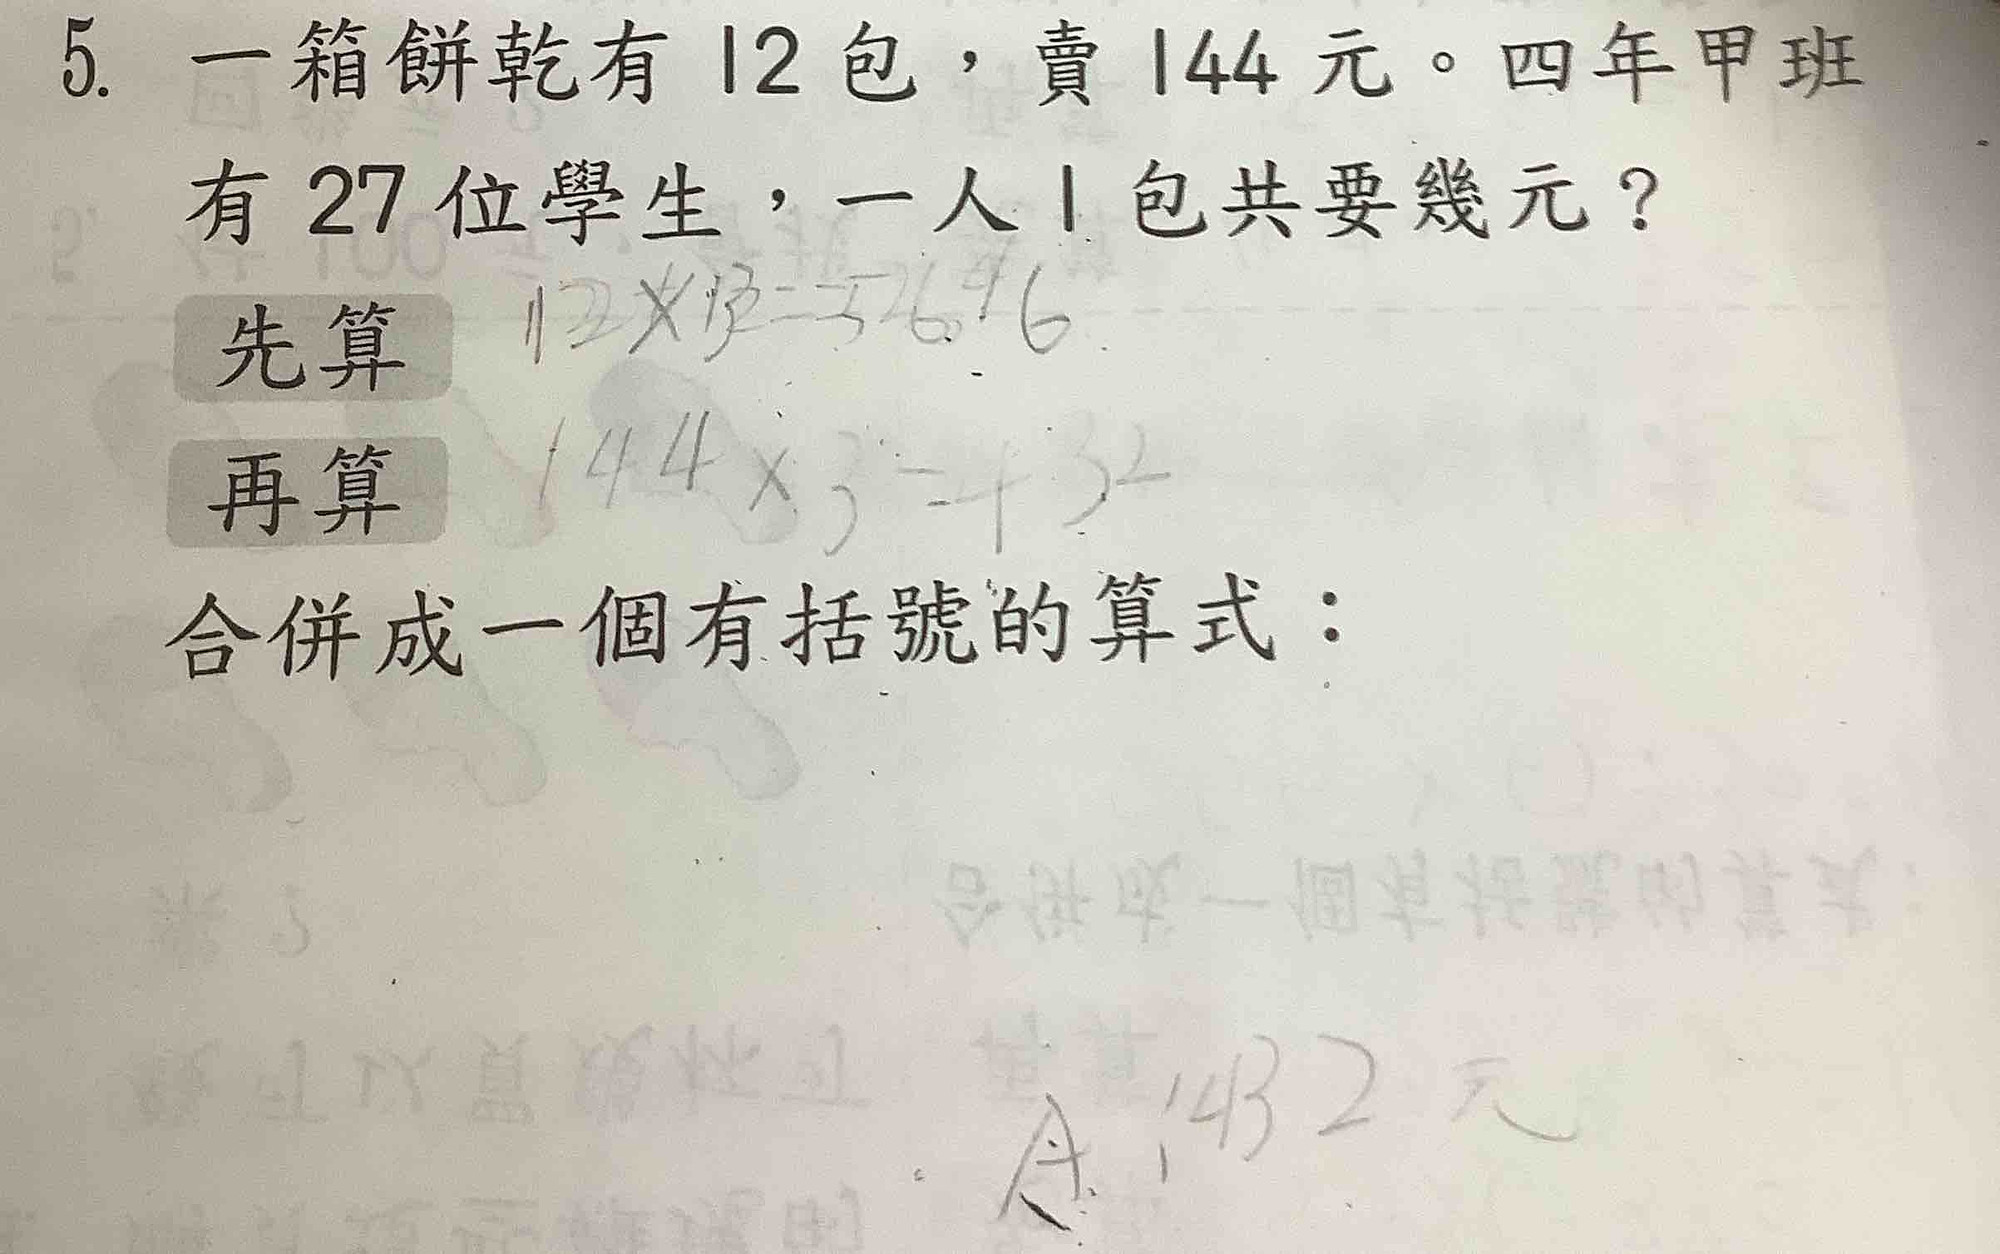 5. 一箱餅乾有 12 包，賣 144 元。四年甲班
有 27 位學生，一人 1 包共要幾元？
先算
再算 144×3=432
合併成一個有括號的算式：
A: 432元